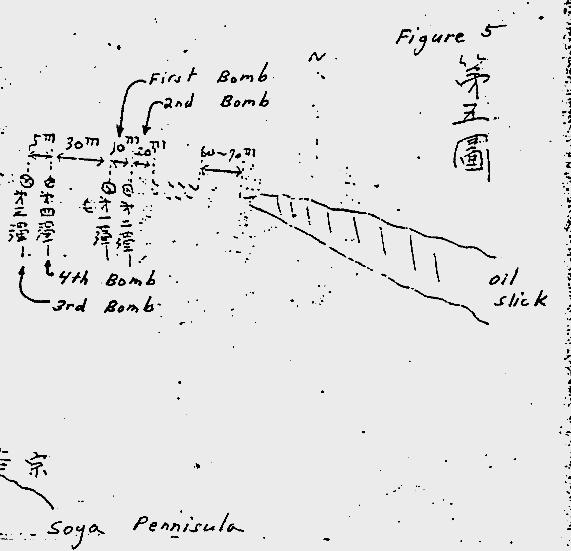 Figure 5
第五圖
N
First Bomb
2nd Bomb
5m
30m
10m
20m
60~70m
第三彈
第四彈
第一彈
第二彈
4th Bomb
3rd Bomb
oil
slick
宗
Soya Pennisula